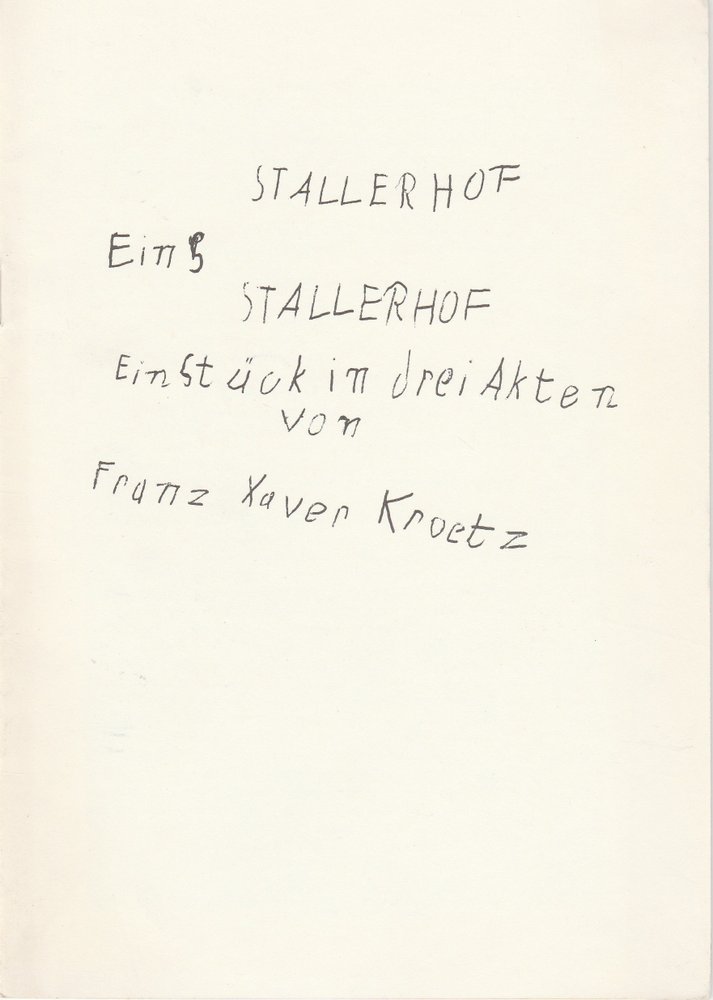 STALLERHOF
Einß
STALLERHOF
EinStück in drei Akten
von
Franz Xaver Kroetz